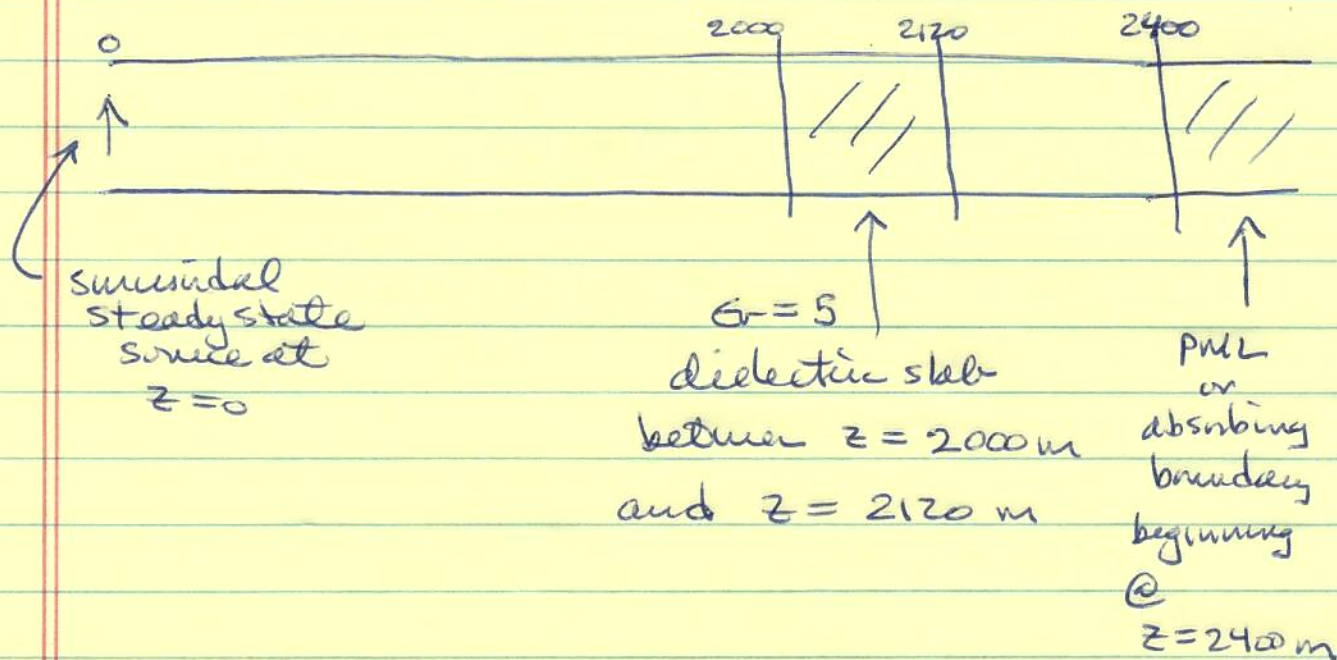 0 2000 2120 2400
sinusoidal
steady state
source at
z=0
εr = 5
dielectric slab
between z = 2000 m
and z = 2120 m
PML
or
absorbing
boundary
beginning
@
z=2400 m